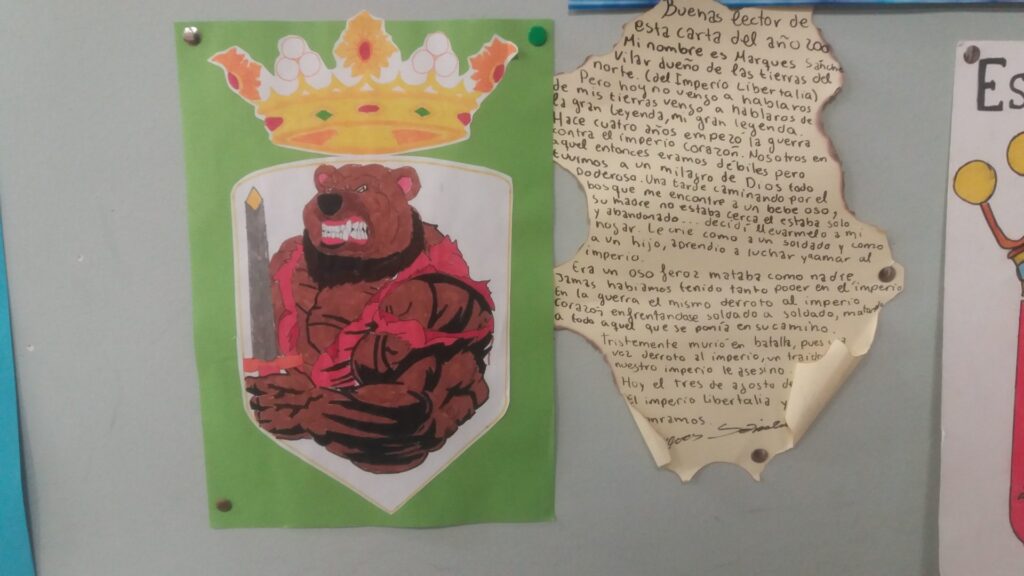 Buenas lector de
esta carta del año 200
Mi nombre es Marques Sánch
Vilar dueño de las tierras del
norte. (del Imperio Libertalia)
Pero hoy no vengo a hablaros
de mis tierras vengo a hablaros de
la gran Leyenda, mi gran legenda.
Hace cuatro años empezó la guerra
contra el imperio Corazón. Nosotros en
aquel entonces eramos débiles pero
tuvimos a un milagro de Dios todo
Poderoso. Una tarde caminando por el
bosque me encontre a un bebe oso,
su madre no estaba cerca el estaba solo
y abandonado... decidí llevarmelo a mi
hogar. Le crie como a un soldado y como
a un hijo, aprendio a luchar y amar al
imperio.
Era un oso feroz mataba como nadre
Jamas habiamos tenido tanto poder en el imperio
En la guerra el mismo derroto al imperio
Corazón enfrentandose soldado a soldado, matand
a todo aquel que se ponía en su camino.
Tristemente murió en batalla, pues
voz derroto al imperio, un traido
nuestro imperio le asesino
Hoy el tres de agosto de
el imperio Libertalia y
mramos.
Es